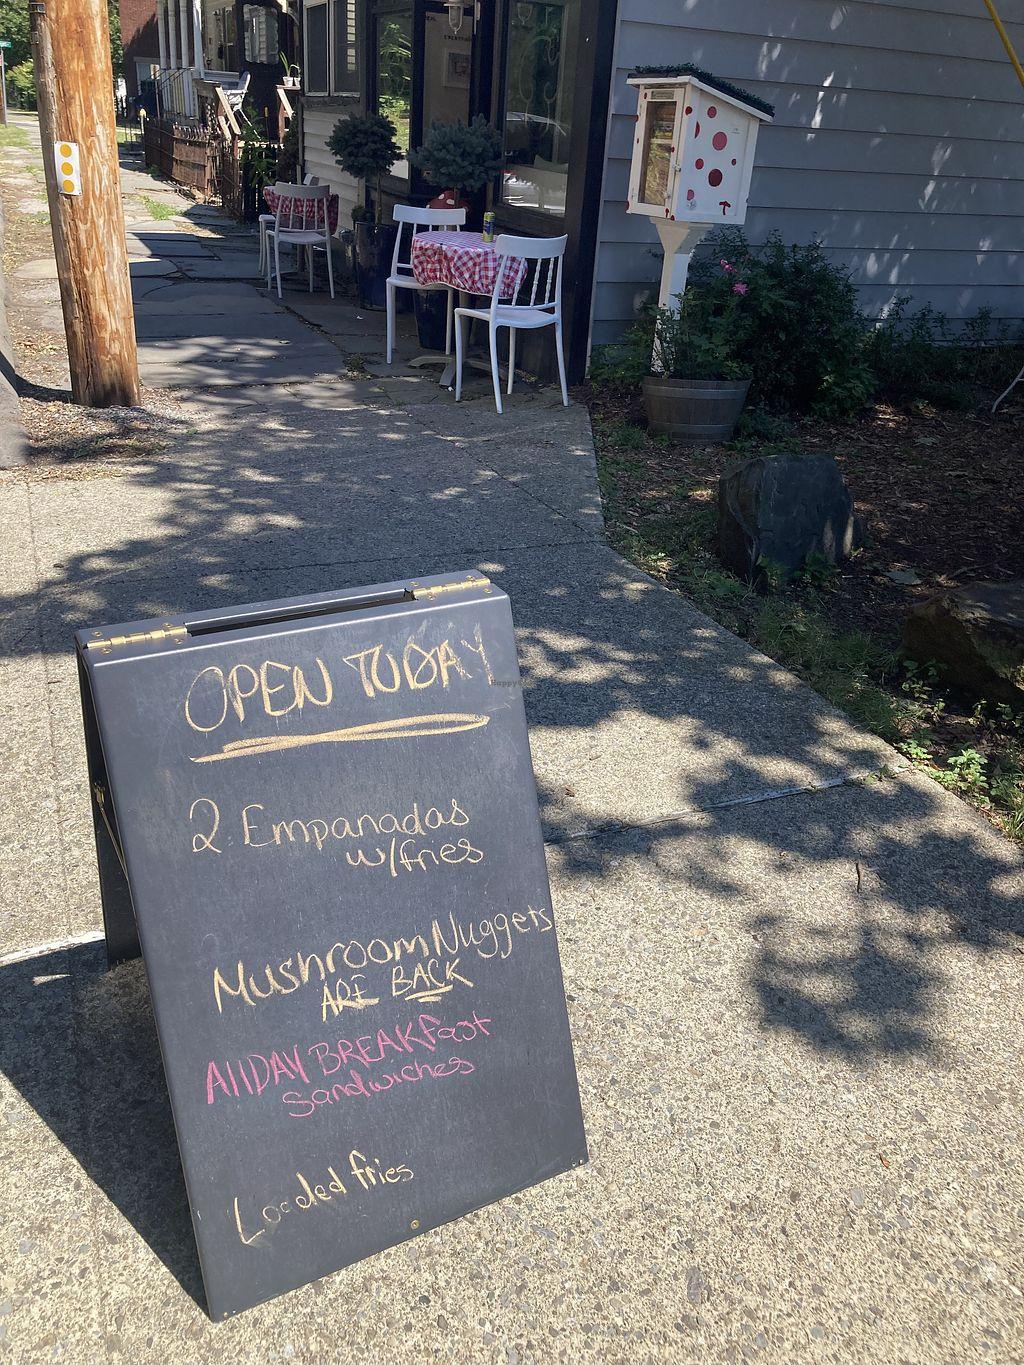 OPEN TODAY
2 Empanadas
w/fries
Mushroom Nuggets
ARE BACK
AllDAY BREAKfast
Sandwiches
Loaded fries